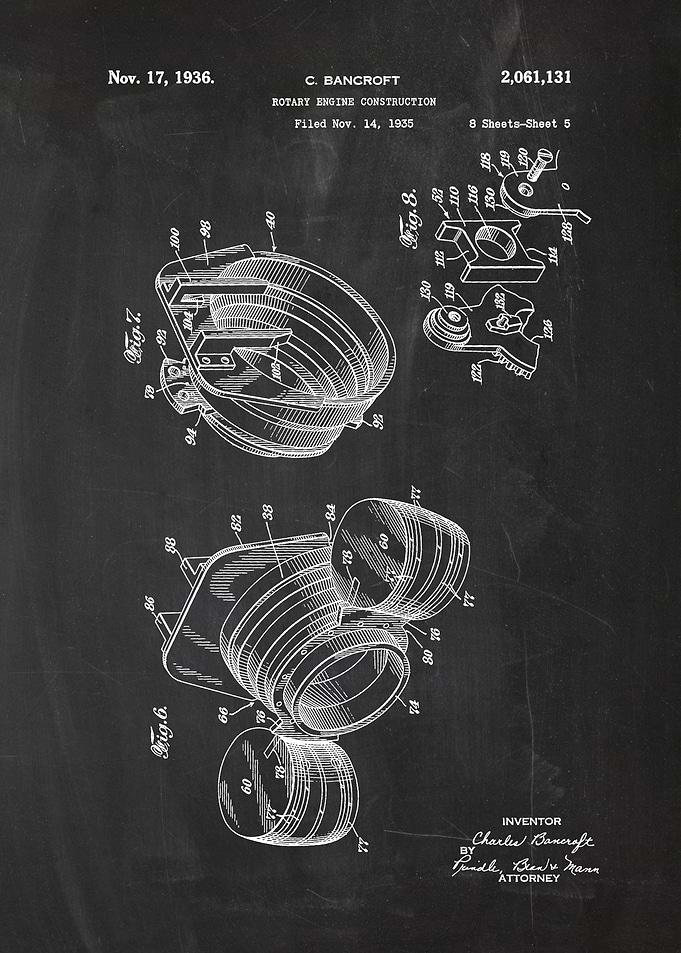 Nov. 17, 1936.
C. BANCROFT
2,061,131
ROTARY ENGINE CONSTRUCTION
Filed Nov. 14, 1935
8 Sheets-Sheet 5
Fig.8.
118
119
120
130
116
110
52
112
114
128
130
119
132
126
122
Fig.7.
40
98
100
104
108
92
78
94
92
Fig.6.
77
84
38
82
88
86
60
78
77
77
76
80
74
66
76
78
60
77
77
INVENTOR
Charles Bancroft
BY
Prindle, Bean & Mann
ATTORNEY